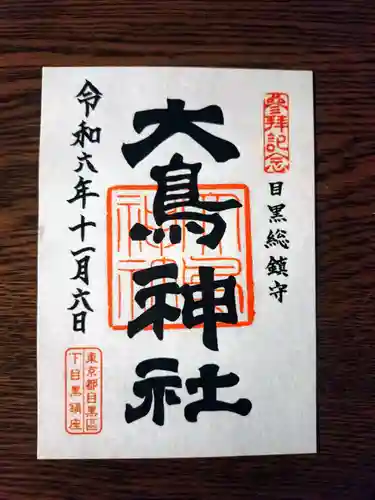 參拜記念
目黒総鎮守
大鳥神社
令和六年十一月六日
東京都目黒區
下目黒鎮座